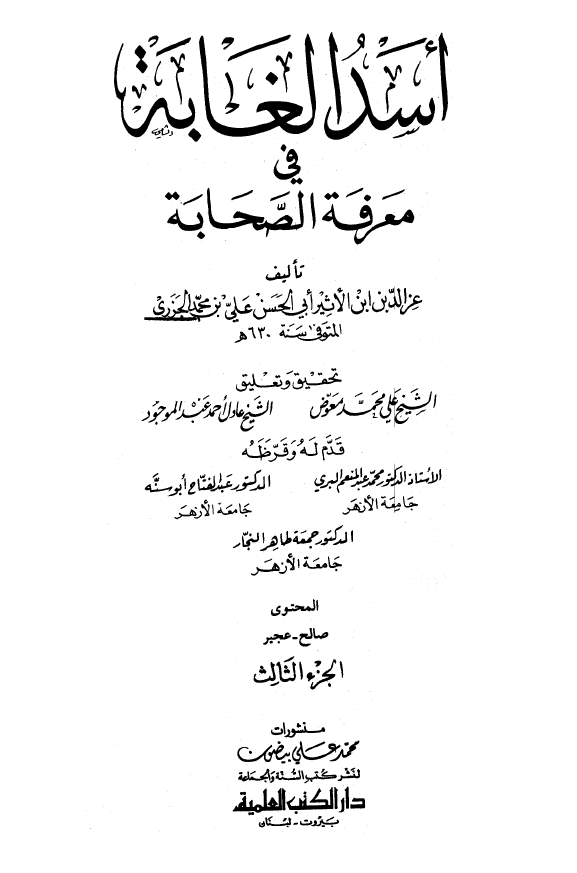 أسد الغابة
في
معرفة الصَّحابة
تأليف
عز الدين ابن الأثير أبي الحسن علي بن محمد الجزري
المتوفى سنة ٦٣٠هـ
تحقيق وتعليق
الشيخ علي محمد معوض الشيخ عادل أحمد عبد الموجود
قدَّم له وقرّظه
الأستاذ الدكتور محمد عبد المنعم البري الدكتور عبد الفتاح أبو سنة
جامعة الأزهر جامعة الأزهر
الدكتور جمعة طاهر النجار
جامعة الأزهر
المحتوى
صالح - عجير
الجزء الثالث
منشورات
محمد علي بيضون
لنشر كتب السنة والجماعة
دار الكتب العلمية
بيروت - لبنان